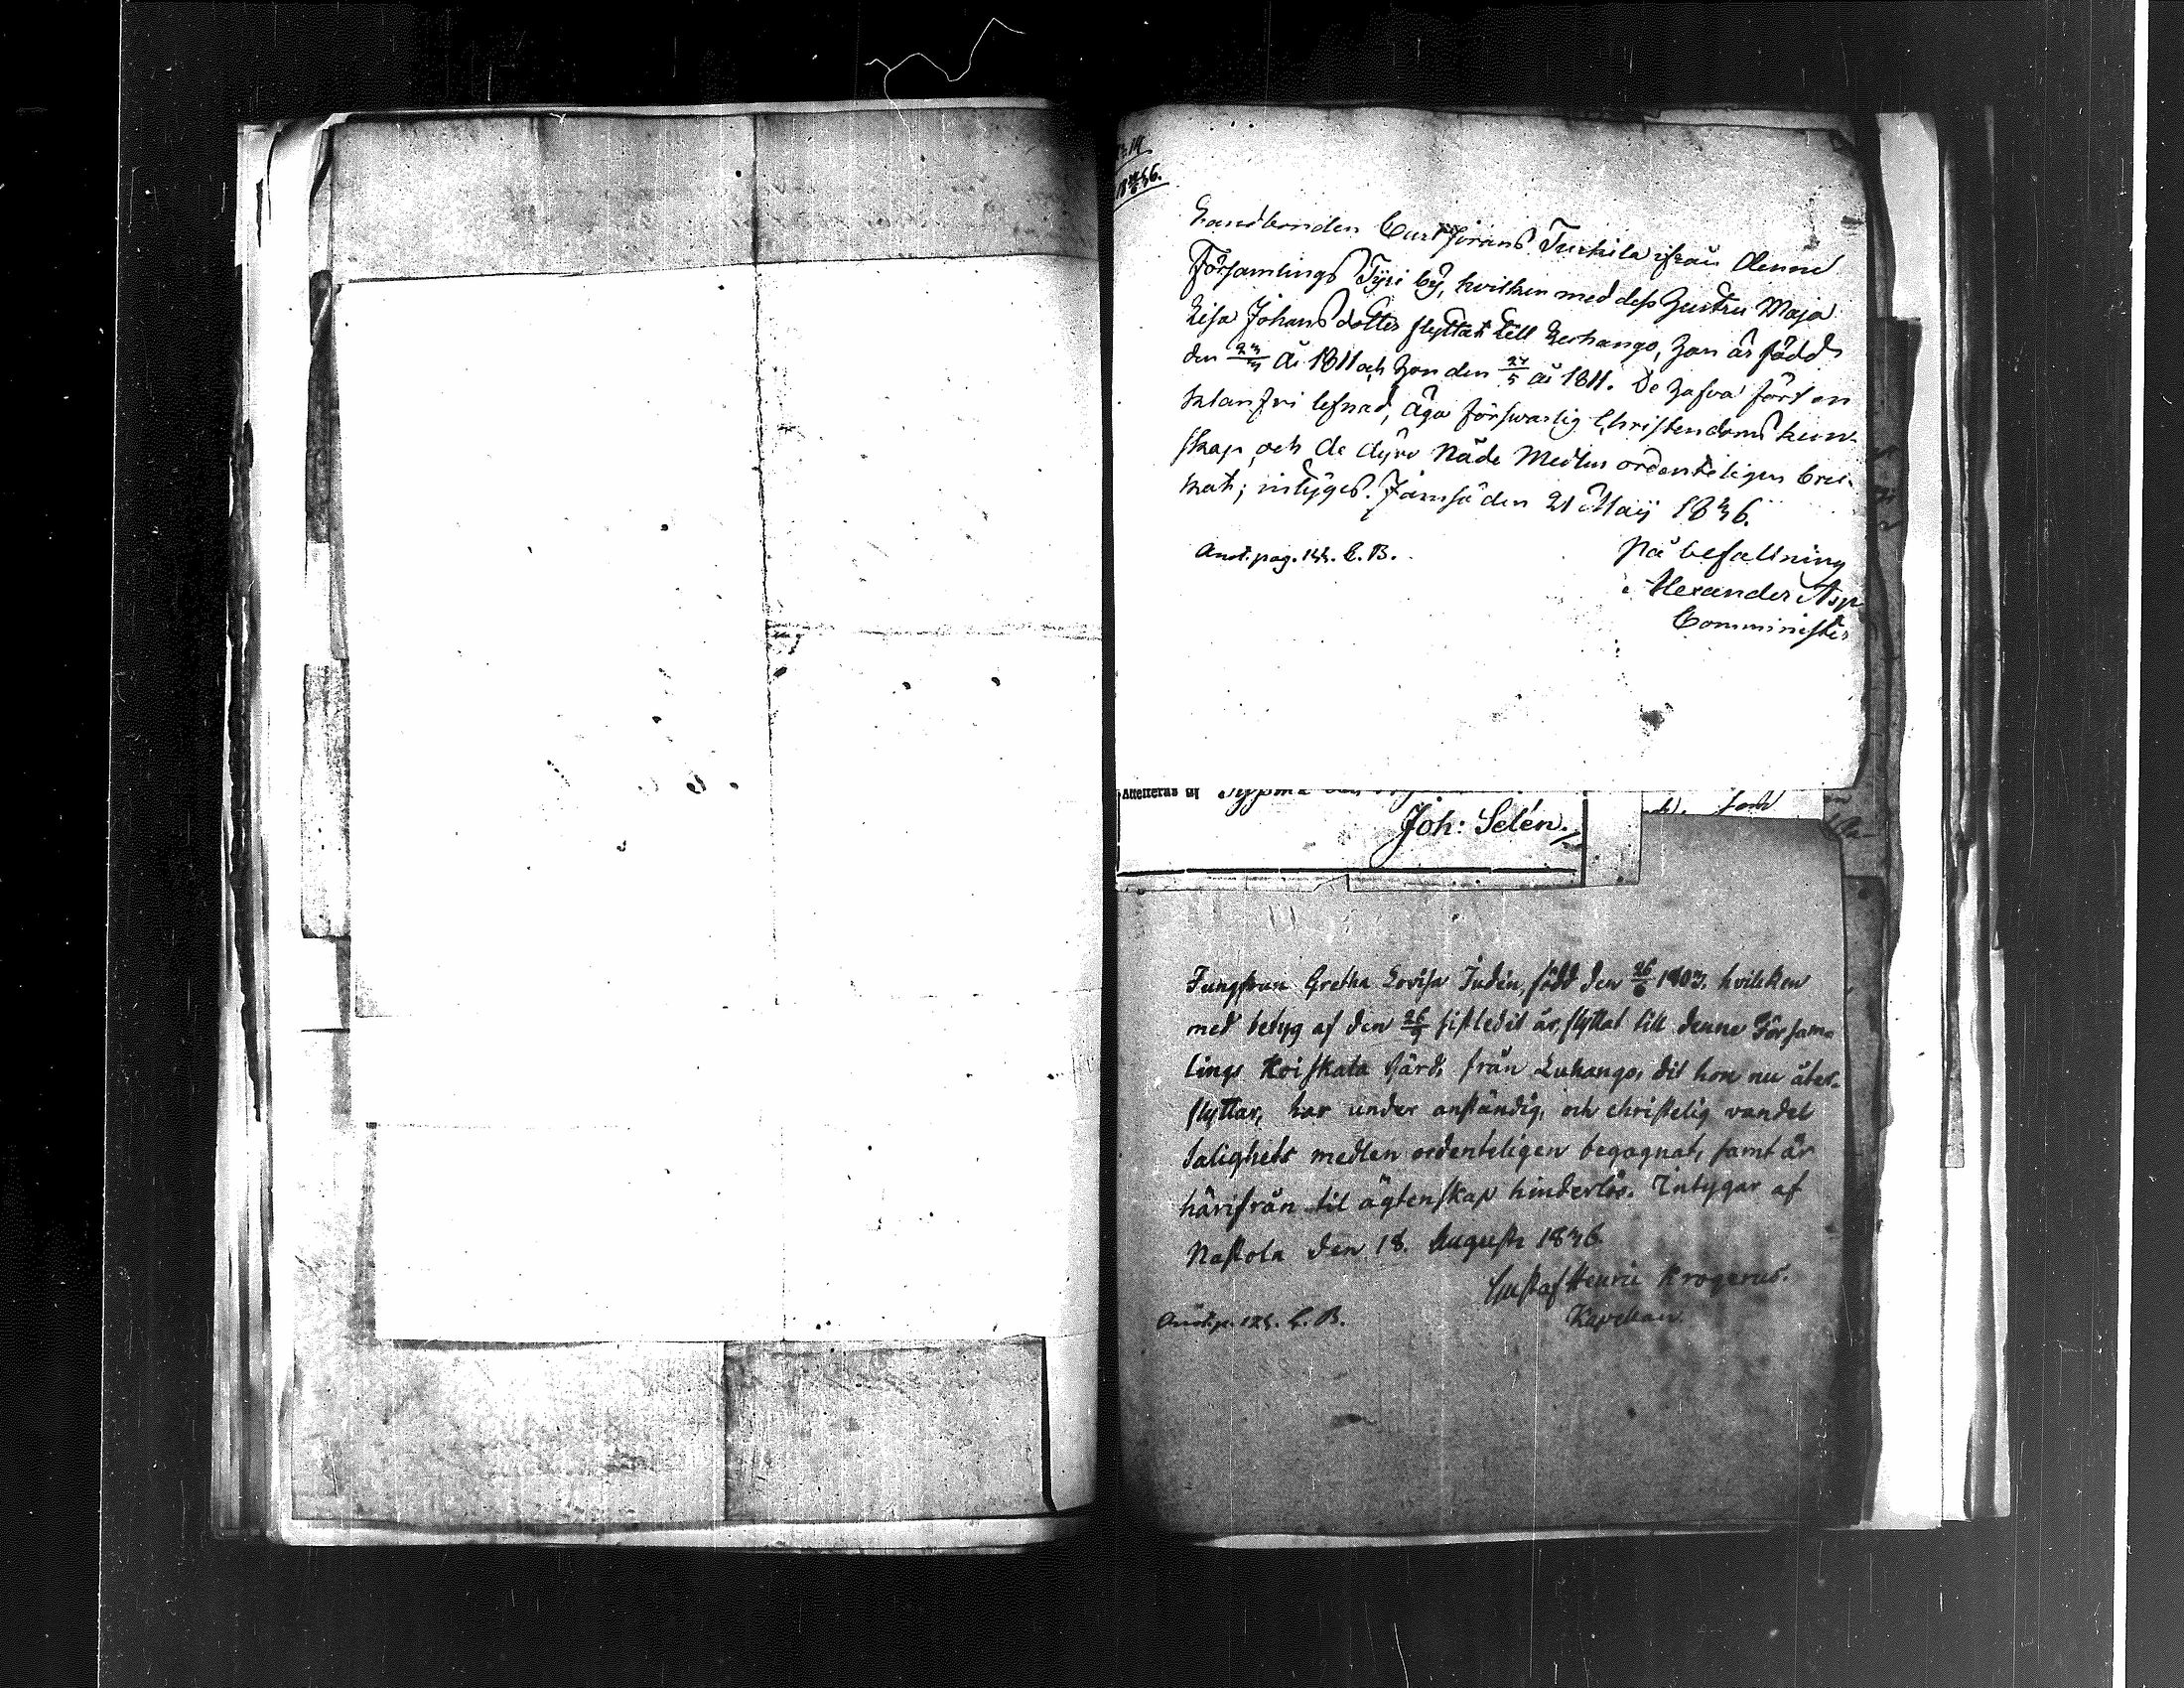 Landbonden Carl Görans Turkila ifrån denne
Församlings Tyri by, hvilken med dess Hustru Maja
Lisa Johans dotter flyttat till Luhango, han är född
den 23/4 år 1811 och hon den 27/5 år 1811. De hafva fört en
klanfri lefnad, äga försvarlig Christendoms kun-
skap och de dyre Nåde Medlen ordenteligen bru-
kat; intygas. Jämsä den 21 Maij 1836.
På befallning
Alexander Asp
Comminister
Anot. pag. 144. C. B.
Attesteras af
Joh: Selén.
som
Jungfrun Gretha Lovisa Judén, född den 26/6 1803. hvilcken
med betyg af den 26/9 sistledit år, flyttat till denne Försam-
lings Koiskala Gård, från Luhango, dit hon nu åter-
flyttar, har under anständig, och christelig vandel
salighets medlen ordenteligen begagnat, samt är
härifrån til ägtenskap hinderlös. Intygar af
Nastola den 18. Augusti 1836.
Gustaf Henric Krogerus.
Kapellan.
Anot. p. 124. C. B.